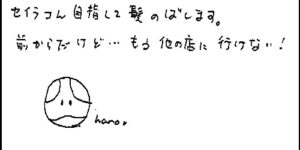 セイラさん目指して髪のばします。
前からだけど…もう他の店に行けない!
haro.